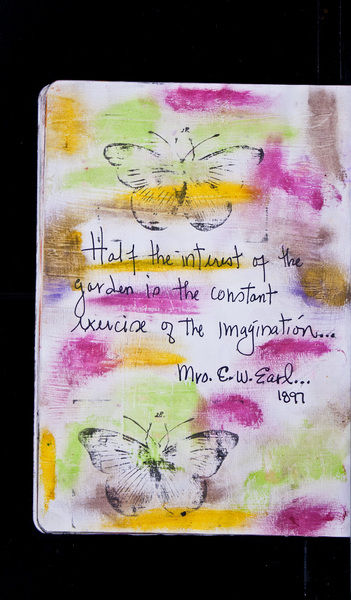 Half the interest of the
garden is the constant
exercise of the imagination...
Mrs. E.W. Earl...
1897